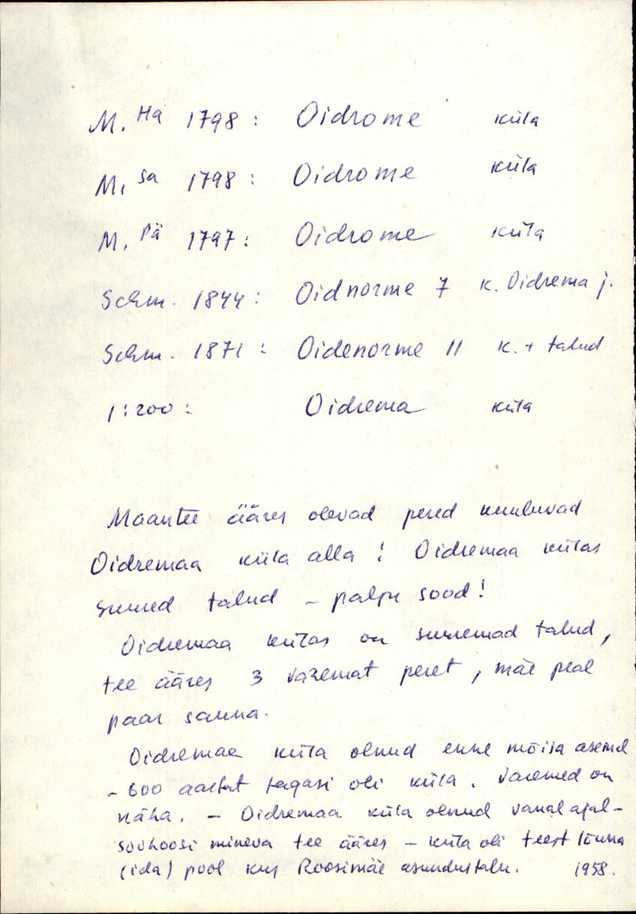 M. Ha 1798: Oidrome küla
M. Sa 1798: Oidrome küla
M. Pä 1797: Oidrome küla
Schm. 1844: Oidnorme 7 k. Oidrema j.
Schm. 1871: Oidenorme 11 k. + talud
1:200: Oidrema küla
Maantee ääres olevad pered kuuluvad
Oidremaa küla alla! Oidremaa külas
suured talud – palju sood!
Oidremaa külas on suuremad talud,
tee ääres 3 väremat peret, mäe peal
paar sauna.
Oidremaa küla olnud enne mõisa asemel
– 600 aastat tagasi oli küla. Varemed on
näha. – Oidremaa küla olnud vanal ajal –
sovhoosi mineva tee ääres – küla oli teest lõuna
(ida) pool kus Roosimäe asundustalu. 1958.